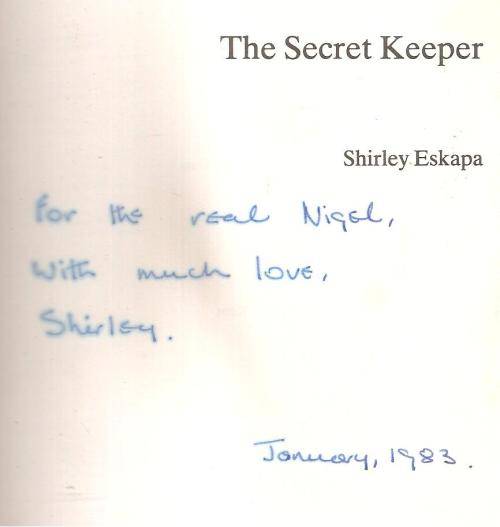 The Secret Keeper
Shirley Eskapa
For the real Nigel,
With much love,
Shirley.
January, 1983.